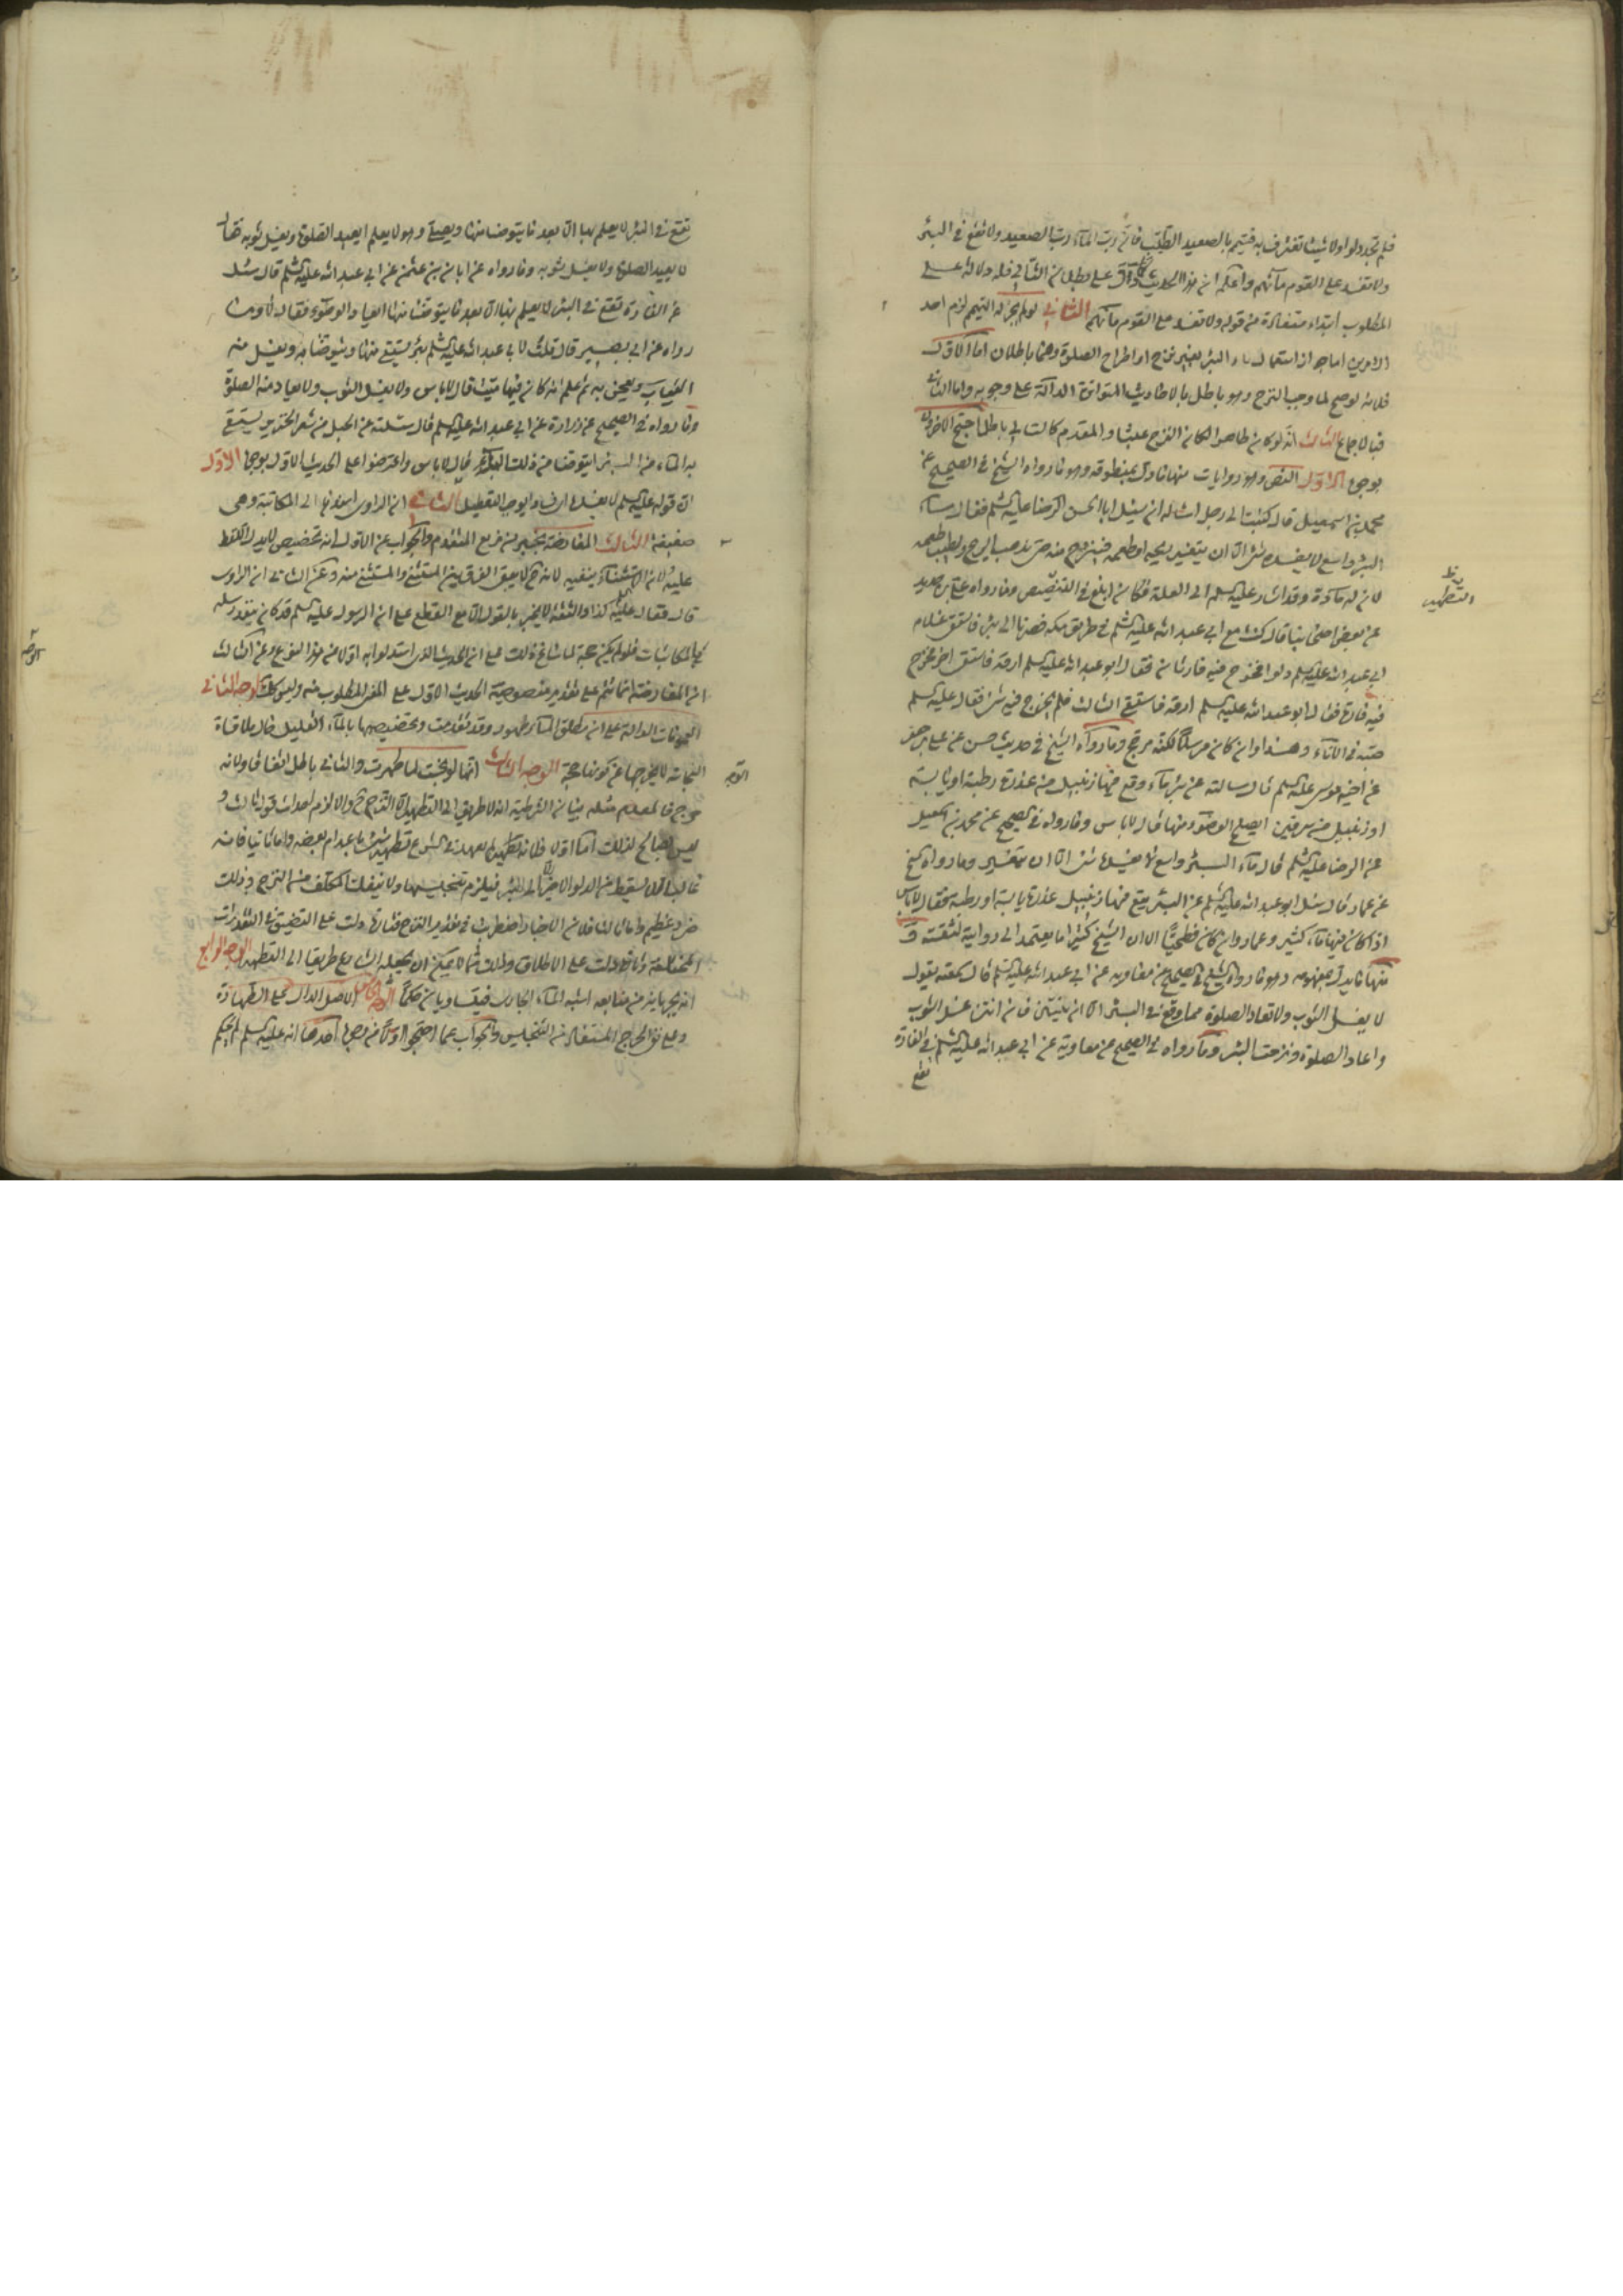 فلم تجد دلوا ولا شيئا تغترف به فتيمم بالصعيد الطيب فان رب الماء رب الصعيد ولا تقع في البئر
ولا تفسد على القوم مائهم واعلم ان هذا الحديث كما دل على مطلوبنا الثاني فله دلالة على
المطلوب ابتداء مستفادة من قوله ولا تفسد على القوم مائهم الثاني لو لم يجز له التيمم لزم احد
الامرين اما جواز استعمال ماء البئر بغير نزح او اطراح الصلوة وهما باطلان اما الاول
فلانه لو صح لما وجب النزح وهو باطل بالاحاديث المتواترة الدالة على وجوبه واما الثاني
فبالاجماع الثالث انه لو كان طاهرا لكان النزح عبثا والمقدم كالتالي باطل احتج الاخرون
بوجوه الاول النص وهو روايات منها ما دل بمنطوقه وهو ما رواه الشيخ في الصحيح عن
محمد بن اسمعيل قال كتبت الى رجل اساله ان يسئل ابا الحسن الرضا عليه السلم فقال ماء
البئر واسع لا يفسده شئ الا ان يتغير ريحه او طعمه فينزح منه حتى يذهب الريح ويطيب طعمه
لان له مادة وقد اشار عليه السلم الى العلة فكان ابلغ في التنصيص وما رواه علي بن حديد
عن بعض اصحابنا قال كنت مع ابي عبد الله عليه السلم في طريق مكة فصرنا الى بئر فاستقى غلام
ابي عبد الله عليه السلم دلوا فخرج فيه فارتان فقال ابو عبد الله عليه السلم ارقه فاستقى اخر فخرج
فيه فارة فقال ابو عبد الله عليه السلم ارقه فاستقى الثالث فلم يخرج فيه شئ فقال عليه السلم
صبه في الاناء وهذا وان كان مرسلا لكنه مرجح وما رواه الشيخ في حديث حسن عن علي بن جعفر
عن اخيه موسى عليه السلم قال سالته عن بئر ماء وقع فيها زنبيل من عذرة رطبة او يابسة
او زنبيل من سرقين ايصلح الوضوء منها قال لا باس وما رواه في الصحيح عن محمد بن اسمعيل
عن الرضا عليه السلم قال ماء البئر واسع لا يفسده شئ الا ان يتغير وما رواه الشيخ
عن عمار قال سئل ابو عبد الله عليه السلم عن البئر يقع فيها زنبيل عذرة يابسة او رطبة فقال لا باس
اذا كان فيها ماء كثير وعمار وان كان فطحيا الا ان الشيخ كثيرا ما يعتمد الى روايته لثقته و
منها ما يدل بمفهومه وهو ما رواه الشيخ في الصحيح عن معاوية عن ابي عبد الله عليه السلم قال سمعته يقول
لا يغسل الثوب ولا تعاد الصلوة مما وقع في البئر الا ان ينتن فان انتن غسل الثوب
واعاد الصلوة ونزحت البئر وما رواه في الصحيح عن معاوية عن ابي عبد الله عليه السلم في الفارة
تقع
التطهير
تقع في البئر لا يعلم بها الا بعد ما يتوضا منها ويصلي وهو لا يعلم ايعيد الصلوة ويغسل ثوبه فقال
لا يعيد الصلوة ولا يغسل ثوبه وما رواه عن ابان بن عثمن عن ابي عبد الله عليه السلم قال سئل
عن الفارة تقع في البئر لا يعلم بها الا بعد ما يتوضا منها ايعاد الوضوء فقال لا وما
رواه عن ابي بصير قال قلت لابي عبد الله عليه السلم بئر يستقى منها ويتوضا به ويغسل منه
الثياب ويعجن به ثم علم انه كان فيها ميت قال لا باس ولا يغسل الثوب ولا تعاد منه الصلوة
وما رواه في الصحيح عن زرارة عن ابي عبد الله عليه السلم قال سئلته عن الحبل من شعر الخنزير يستقى
به الماء من البئر ايتوضا من ذلك الماء قال لا باس واعترضوا على الحديث الاول بوجوه الاول
ان قوله عليه السلم لا يفسده اي فسادا يوجب التعطيل الثاني ان الراوي اسندها الى المكاتبة وهي
ضعيفة الثالث المعارضة بخبر ابن بزيع المتقدم والجواب عن الاول انه تخصيص لا يدل اللفظ
عليه لان الاستثناء ينفيه لانه ح لا يبقى الفرق بين المستثنى والمستثنى منه وعن الثاني ان الراوي
قال فقال عليه السلم كذا والثقة لا يخبر بالقول الا مع القطع على ان الرسول عليه السلم قد كان ينفذ رسله
بالمكاتبات فلو لم يكن حجة لما ساغ ذلك على ان الحديث الذي استدلوا به اولا من هذا النوع وعن الثالث
ان المعارضة انما تتم على تقدير منصوصية الحديث الاول على المطلوب منه وليس كذلك الوجه الثاني
العمومات الدالة على ان مطلق الماء طهور وقد تقدمت وتخصيصها بالماء القليل حال ملاقاة
النجاسة لا يخرجها عن كونها حجة الوجه الثالث انها لو نجست لما طهرت والتالي باطل اتفاقا ولانه
حرج فالمقدم مثله بيان الشرطية انه لا طريق الى التطهير الا النزح ح والا لزم احداث قول ثالث و
ليس بصالح لذلك اما اولا فلانه لم يعهد في الشرع تطهير شئ باعدام بعضه واما ثانيا فانه
غالبا يسقط من الدلو الاخير الى البئر فيلزم تنجيسها ولا ينفك المكلف من النزح وذلك
ضرر عظيم واما ثالثا فلان الاخبار اضطربت في تقدير النزح فتارة دلت على التضيق في التقديرات
المختلفة وتارة دلت على الاطلاق وذلك مما لا يمكن ان يجعله الشارع طريقا الى التطهير الوجه الرابع
انه يجريانه من منابعه اشبه الماء الجاري فيتساويان حكما الوجه الخامس الاصل الدال على الطهارة
ومع نفي الحرج المستفاد من التنجيس والجواب عما احتجوا به اولا من وجوه احدها انه عليه السلم لم يحكم
الوجه
الوجه